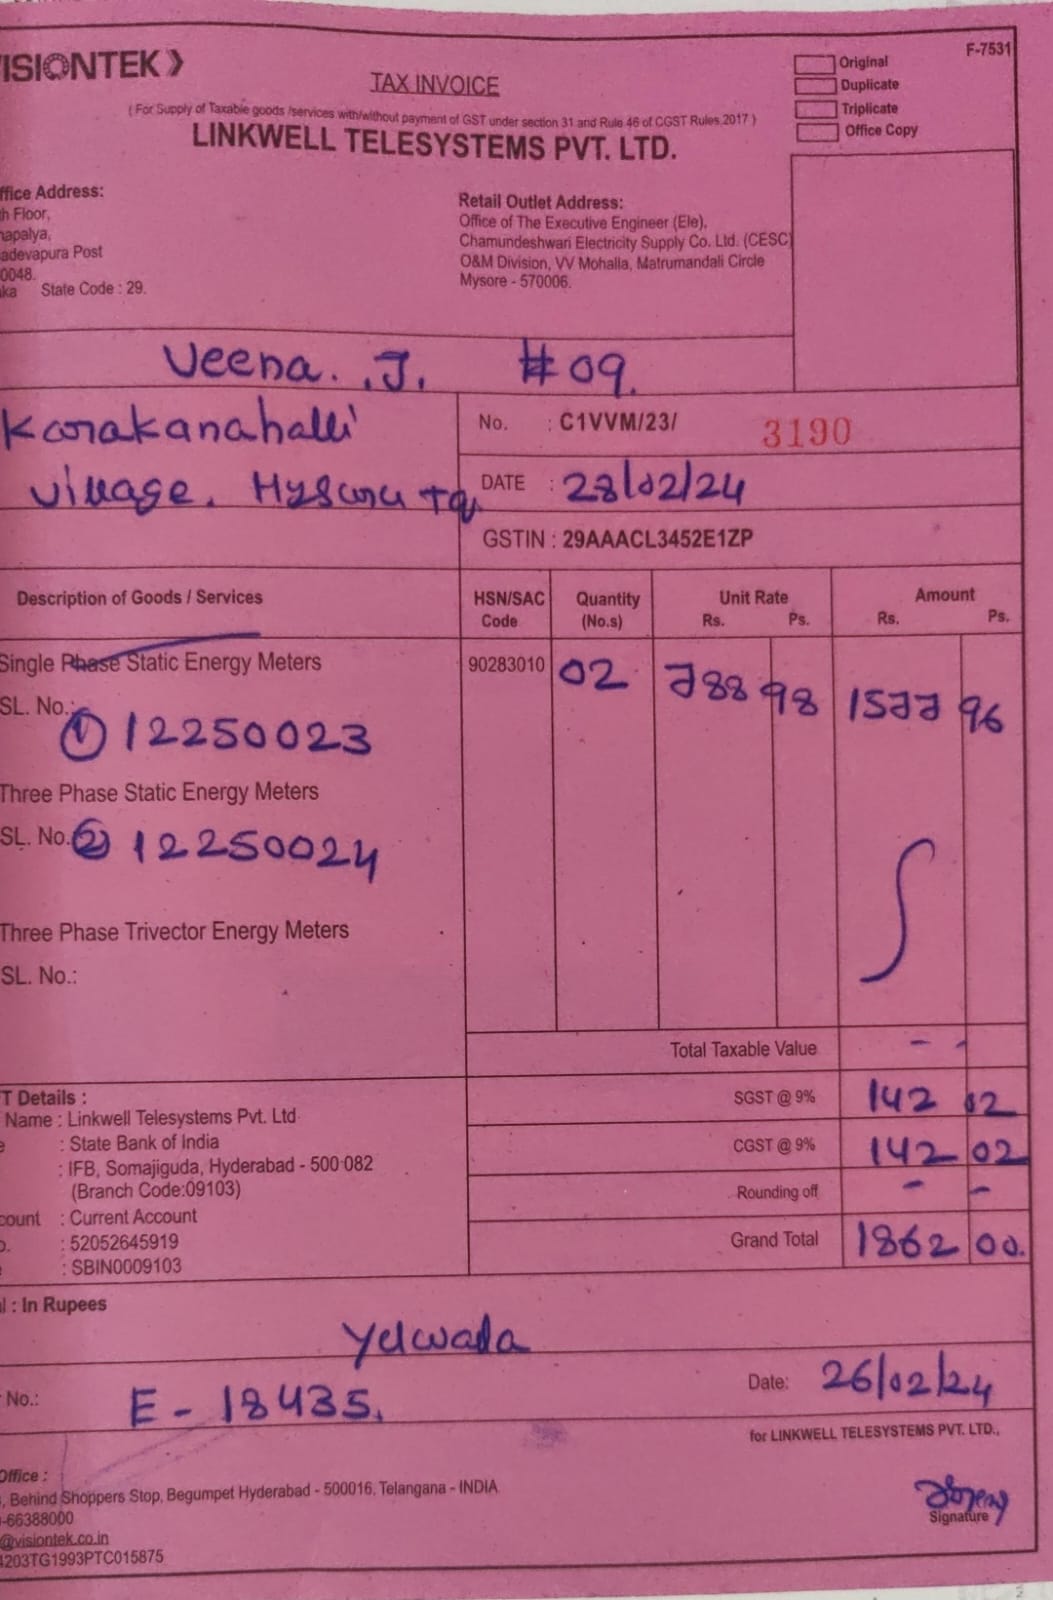 VISIONTEK
F-7531
Original
Duplicate
Triplicate
Office Copy
TAX INVOICE
(For Supply of Taxable goods /services with/without payment of GST under section 31 and Rule 46 of CGST Rules 2017)
LINKWELL TELESYSTEMS PVT. LTD.
ffice Address:
h Floor,
hapalya,
adevapura Post
0048.
ka State Code : 29.
Retail Outlet Address:
Office of The Executive Engineer (Ele),
Chamundeshwari Electricity Supply Co. Ltd. (CESC)
O&M Division, VV Mohalla, Matrumandali Circle
Mysore - 570006.
Veena. J. # 09.
Karakanahalli
village. Mysuru Tq
No. : C1VVM/23/ 3190
DATE : 28/02/24
GSTIN : 29AAACL3452E1ZP
Description of Goods / Services HSN/SAC Code Quantity (No.s) Unit Rate Rs. Ps. Amount Rs. Ps.
Single Phase Static Energy Meters 90283010 02 788 98 1577 96
SL. No.:
① 12250023
Three Phase Static Energy Meters
SL. No. ② 12250024
Three Phase Trivector Energy Meters
SL. No.:
Total Taxable Value - -
SGST @ 9% 142 02
CGST @ 9% 142 02
Rounding off - -
Grand Total 1862 00.
T Details :
Name : Linkwell Telesystems Pvt. Ltd
e : State Bank of India
: IFB, Somajiguda, Hyderabad - 500 082
(Branch Code:09103)
count : Current Account
o. : 52052645919
e : SBIN0009103
l : In Rupees
Yelwada
No.: E - 18435.
Date: 26/02/24
for LINKWELL TELESYSTEMS PVT. LTD.,
Signature
Office :
, Behind Shoppers Stop, Begumpet Hyderabad - 500016, Telangana - INDIA
-66388000
@visiontek.co.in
4203TG1993PTC015875